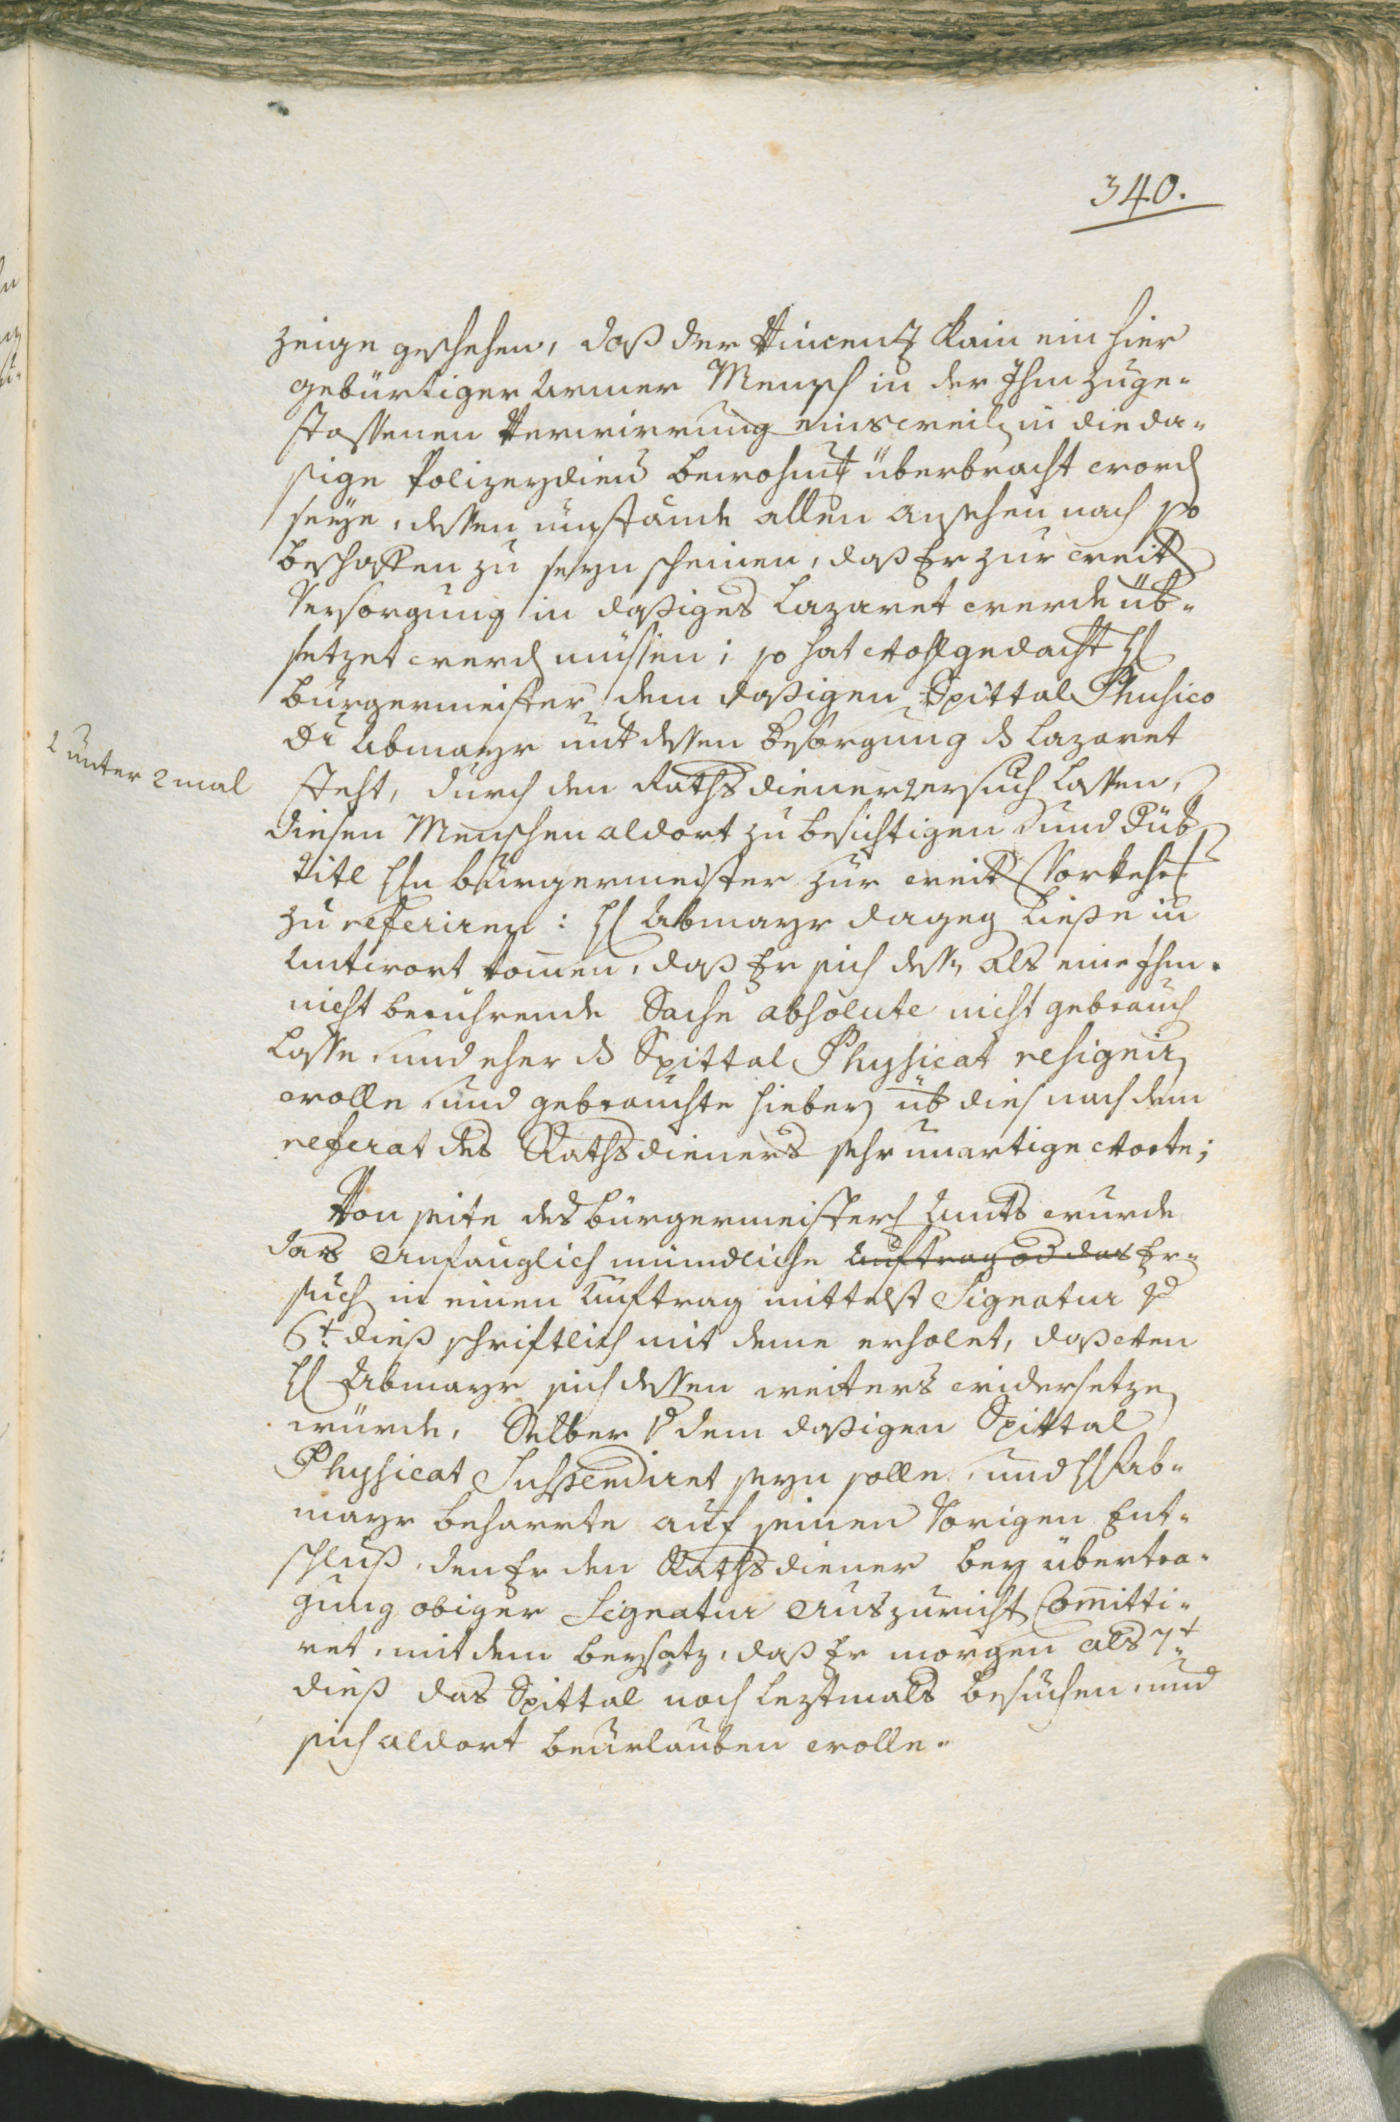 340.
zeige geschehen, daß der Vincenz Kain ein hier
gebürtiger armer Mensch in der Ihm zuge-
stossenen Verwirrung einsweilen in die da-
sige Polizeydien bewohnt überbracht word
seye, dessen umstände allen ansehen nach so
beschaffen zu seyn scheinen, daß Er zur weit
Versorgung in dasiges Lazaret werde üb-
setzet werd müssen; so hat wohlgedacht H
Bürgermeister dem dasigen Spittal Phusico
Dr Abmayr mit dessen Besorgung ds Lazaret
2 unter 2 mal
steht, durch den Rathsdiener 2 ersuch lassen,
diesen Menschen aldort zu besichtigen und
titl Hn bürgermeister zur weit Vorkehr
zu referiren: H Abmayr dageg ließe in
Antwort kom̅en, daß Er sich dessen als eine Ihm
nicht berührende Sache absolute nicht gebrauch
lasse, und eher ds Spittal Physicat resignir
wolle und gebrauchte hiebey üb dies nach dem
referat des Rathsdieners sehr unartige Worte;
Von seite des bürgermeister Amts wurde
das anfänglich mündliche Auftrag od das Er-
such in einen Auftrag mittelst Signatur
6t dieß schriftlich mit deme erholet, daß wen
H Abmayr sich dessen weiters widersetze
würde, Selber dem dasigen Spittal
Physicat Suspendiret seyn solle, und H Ab-
mayr beharrte auf seinen Vorigen Ent-
schluß, den Er den Rathsdiener bey übertra-
gung obiger Signatur auszuricht Com̅itti-
ret, mit dem beysatz, daß Er morgen als 7t
dieß das Spittal noch leztmals besuchen, und
sich aldort beurlauben wolle.